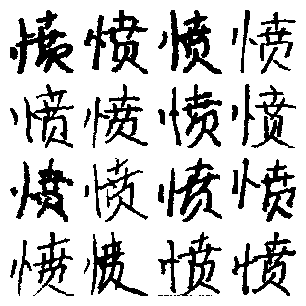 愤愤愤愤
愤愤愤愤
愤愤愤愤
愤愤愤愤